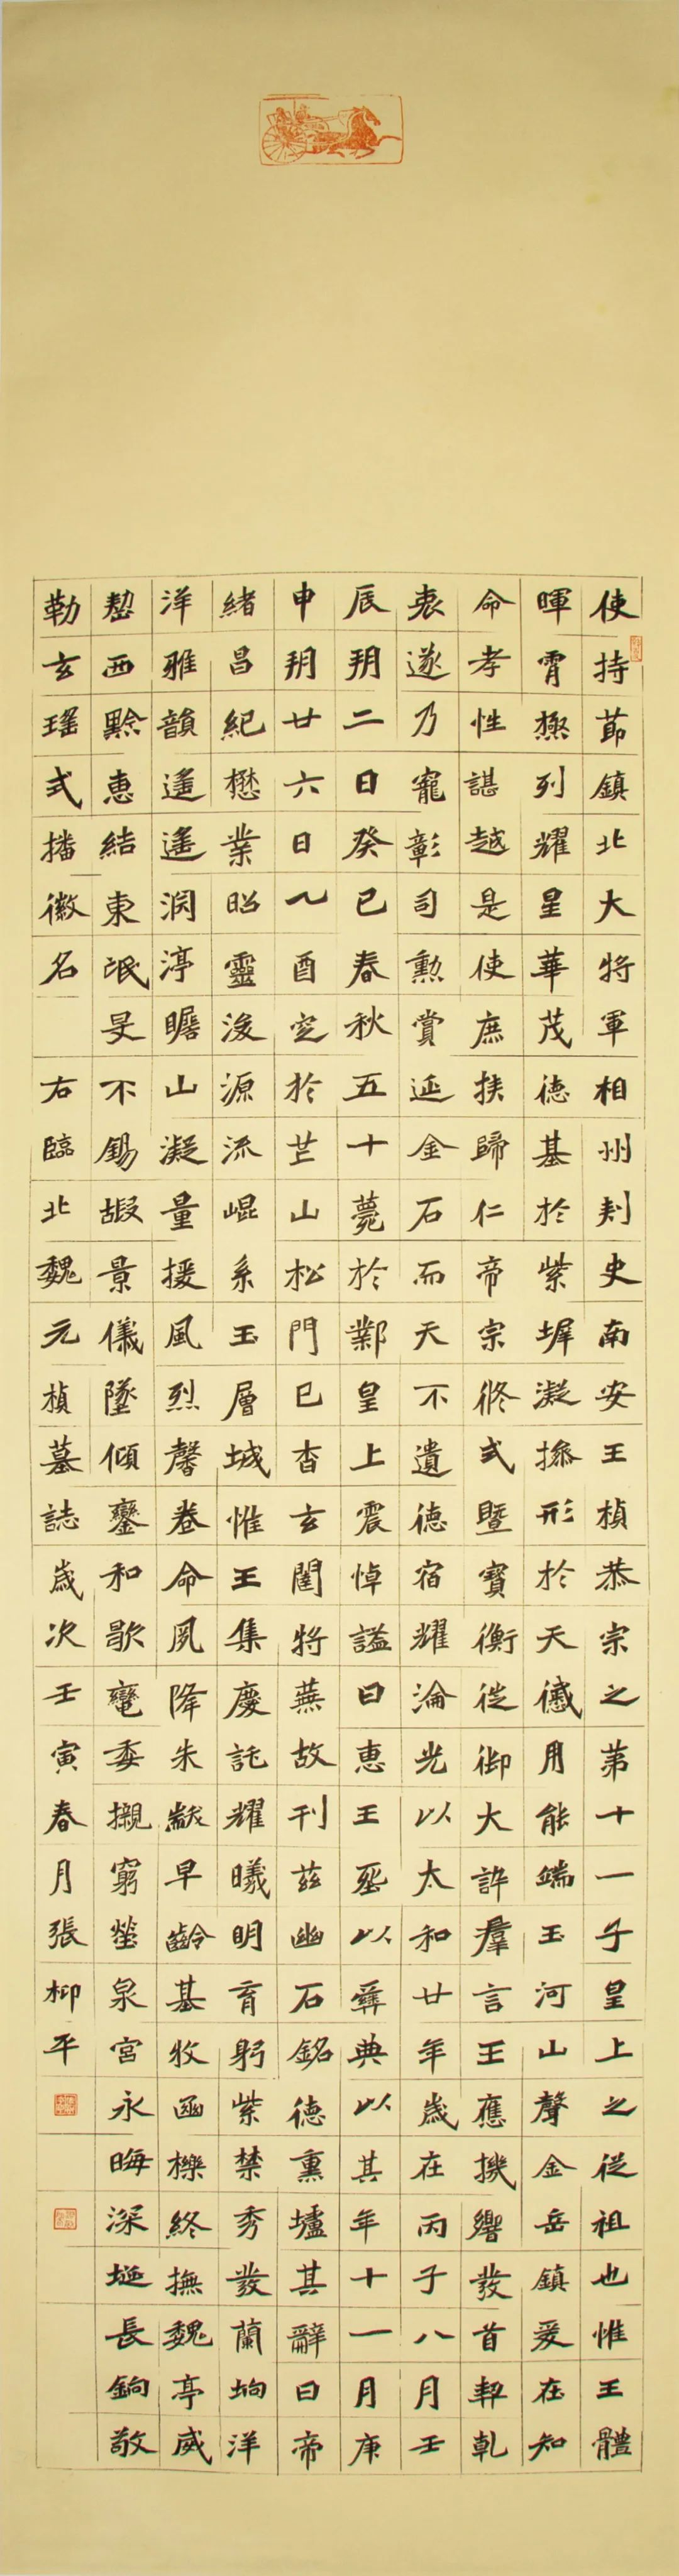 使持節鎮北大將軍相州刺史南安王楨恭宗之第十一子皇上之從祖也惟王體
暉霄極列耀星華茂德基於紫墀凝操形於天儀用能端玉河山聲金岳鎮爰在知
命孝性諶越是使庶族歸仁帝宗攸式暨寶衡從御大訊羣言王應機響發首契乾
衷遂乃寵彰司勳賞延金石而天不遺德宿耀淪光以太和廿年歲在丙子八月壬
辰朔二日癸巳春秋五十薨於鄴皇上震悼謚曰惠王塟以彝典以其年十一月庚
申朔廿六日乙酉窆於芒山松門已杳玄闈將蕪故刊茲幽石銘德熏壚其辭曰帝
緒昌紀懋業昭靈浚源流崐系玉層城惟王集慶託耀曦明育躬紫禁秀發蘭坰洋
洋雅韻遙遙淵渟瞻山凝量援風烈馨卷命夙降朱黻早齡基牧函櫟終撫魏亭威
懃西黔惠結東氓旻不錫嘏景儀墜傾鑾和歇轙委櫬窮塋泉宮永晦深埏長鉤敬
勒玄瑤式播徽名　右臨北魏元楨墓誌歲次壬寅春月張柳平